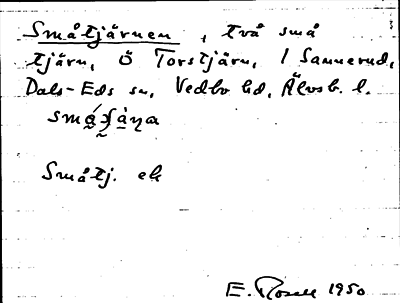 Småtjärnen, två små
tjärn, Ö Torstjärn, l Sannerud,
Dals-Eds sn, Vedbo hd, Älvsb. l.
Småtj. ek
E. Rosell 1950